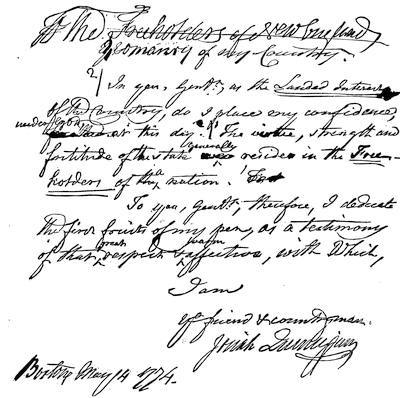 To The Freeholders of New England
Yeomanry of my Country.
2/ In you, Gentn, as the Landed Interest
of the Country, do I place my confidence,
under at this day. The virtue, strength and
generally
fortitude of the state resides in the Free-
holders of the nation.
To you, gentn, therefore, I dedicate
the first fruits of my pen, as a testimony
great warm
of that respect & affection, with Which,
I am
yr friend & countryman.
Josiah Quincy jun
Boston May 14 1774.